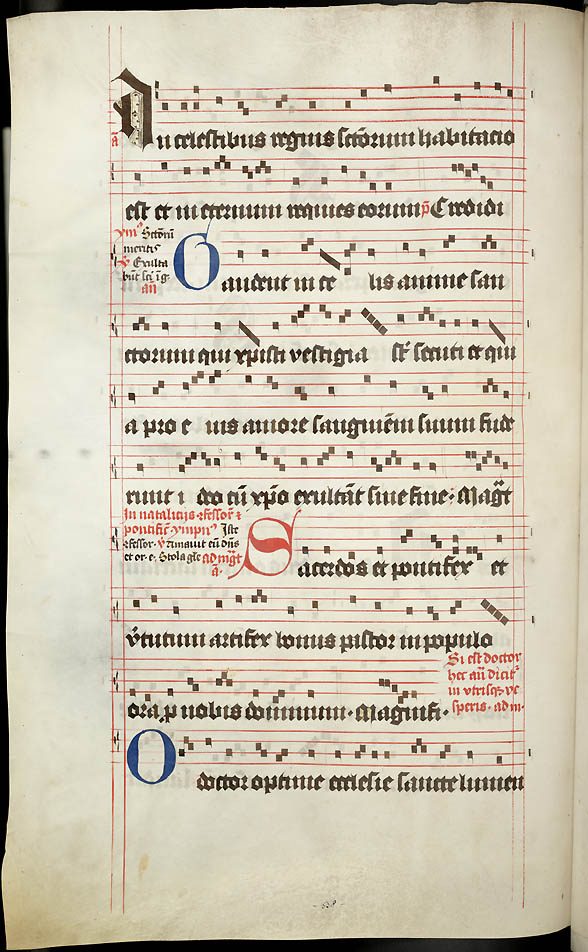 a In celestibus regnis sctōrum habitacio
est et in eternum requies eorum p̄ Credidi
ymꝰ Sctōrū
meritis
v̄ Exulta
būt sci ī g.
an̄
Gaudent in ce lis anime san
ctorum qui xp̄isti vestigia st̄ secuti et qui
a pro e ius amore sanguinem suum fude
runt i deo cū xp̄o exultāt sine fine. Maḡt
In natalitijs ɔfessoꝝ ⁊
pontificū ympnꝰ Iste
ɔfessor. v̄ Amauit eū dn̄s
et or. e. Stola gl̄e ad maḡt
a.
Sacerdos et pontifex et
v̄tutum artifex bonus pastor in populo
ora p nobis dominum. Magnifi.
Si est doctor
hec an̄ dicit̄
in vtrisqꝫ ve
speris. ad m.
O doctor optime ecclesie sancte lumen